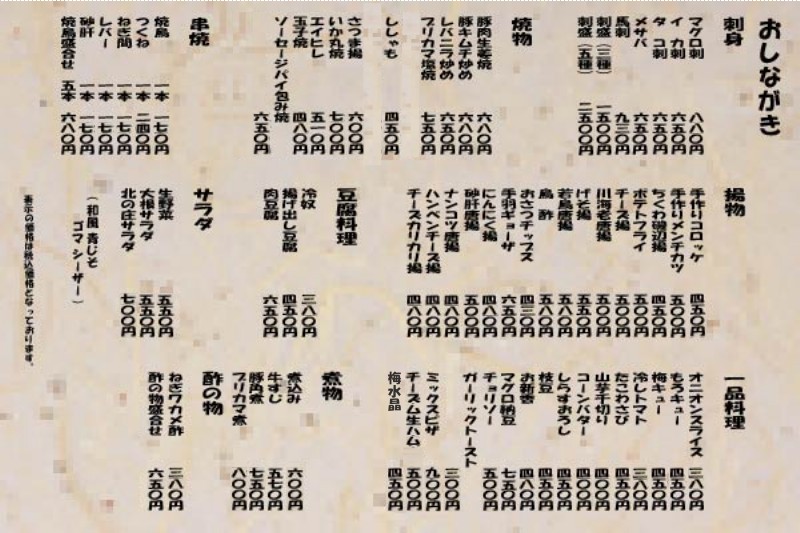 おしながき
刺身
マグロ刺 八八〇円
イカ刺 六五〇円
タコ刺 六五〇円
メサバ 六五〇円
馬刺 九三〇円
刺盛(三種) 一五〇〇円
刺盛(五種) 二五〇〇円
焼物
豚肉生姜焼 六八〇円
豚キムチ炒め 六八〇円
レバニラ炒め 六五〇円
ブリカマ塩焼 七五〇円
ししゃも 四五〇円
さつま揚 六〇〇円
いか丸焼 七〇〇円
エイヒレ 五一〇円
玉子焼 四八〇円
ソーセージパイ包み焼 六五〇円
串焼
焼鳥 一本 一七〇円
つくね 一本 二四〇円
ねぎ間 一本 一七〇円
レバー 一本 一七〇円
砂肝 一本 一七〇円
焼鳥盛合せ 五本 六八〇円
揚物
手作りコロッケ 四五〇円
手作りメンチカツ 五〇〇円
ちくわ磯辺揚 四五〇円
ポテトフライ 五〇〇円
チーズ揚 五〇〇円
川海老唐揚 五〇〇円
げそ揚 四五〇円
若鳥唐揚 五八〇円
鳥酢 五八〇円
おさつチップス 四三〇円
手羽ギョーザ 六五〇円
にんにく揚 四八〇円
砂肝唐揚 五〇〇円
ナンコツ唐揚 四八〇円
ハンペンチーズ揚 四八〇円
チーズカリカリ揚 四八〇円
豆腐料理
冷奴 三八〇円
揚げ出し豆腐 四五〇円
肉豆腐 六五〇円
サラダ
生野菜 五五〇円
大根サラダ 五五〇円
北の庄サラダ 七〇〇円
(和風 青じそ
ゴマ シーザー)
一品料理
オニオンスライス 三八〇円
もろキュー 四五〇円
梅キュー 四五〇円
冷しトマト 三八〇円
たこわさび 四五〇円
山芋千切り 四〇〇円
コーンバター 四〇〇円
しらすおろし 四五〇円
枝豆 四五〇円
お新香 四八〇円
マグロ納豆 七五〇円
チョリソー 五〇〇円
ガーリックトースト 三〇〇円
ミックスピザ 九〇〇円
チーズム生ハム 五〇〇円
梅水晶 四五〇円
煮物
煮込み 六〇〇円
牛すじ 五七〇円
豚角煮 七五〇円
ブリカマ煮 八〇〇円
酢の物
ねぎワカメ酢 三八〇円
酢の物盛合せ 六五〇円
表示の価格は税込価格となっております。